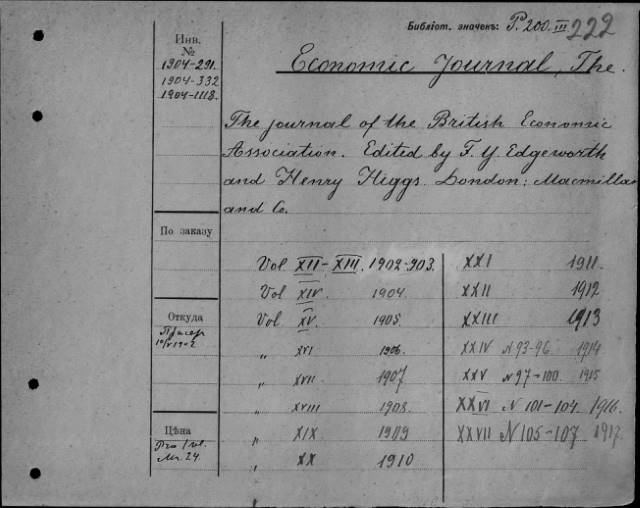 Библіот. значекъ: P. 200. III 222
Инв.
№
1904-291.
1904-332
1904-1118.
Economic Journal, The.
The journal of the British Economic
Association. Edited by F. Y. Edgeworth
and Henry Higgs. London: Macmillan
and Co.
По заказу
Откуда
10/V 1902
Цѣна
Pro 1 vl.
Mr. 24
Vol XII-XIII. 1902-903.
Vol XIV. 1904.
Vol XV. 1905.
„ XVI 1906.
„ XVII 1907
„ XVIII 1908.
„ XIX 1909
„ XX 1910
XXI 1911.
XXII 1912
XXIII 1913
XXIV N 93-96. 1914
XXV N 97-100. 1915
XXVI N 101-104. 1916.
XXVII N 105-107 1917.